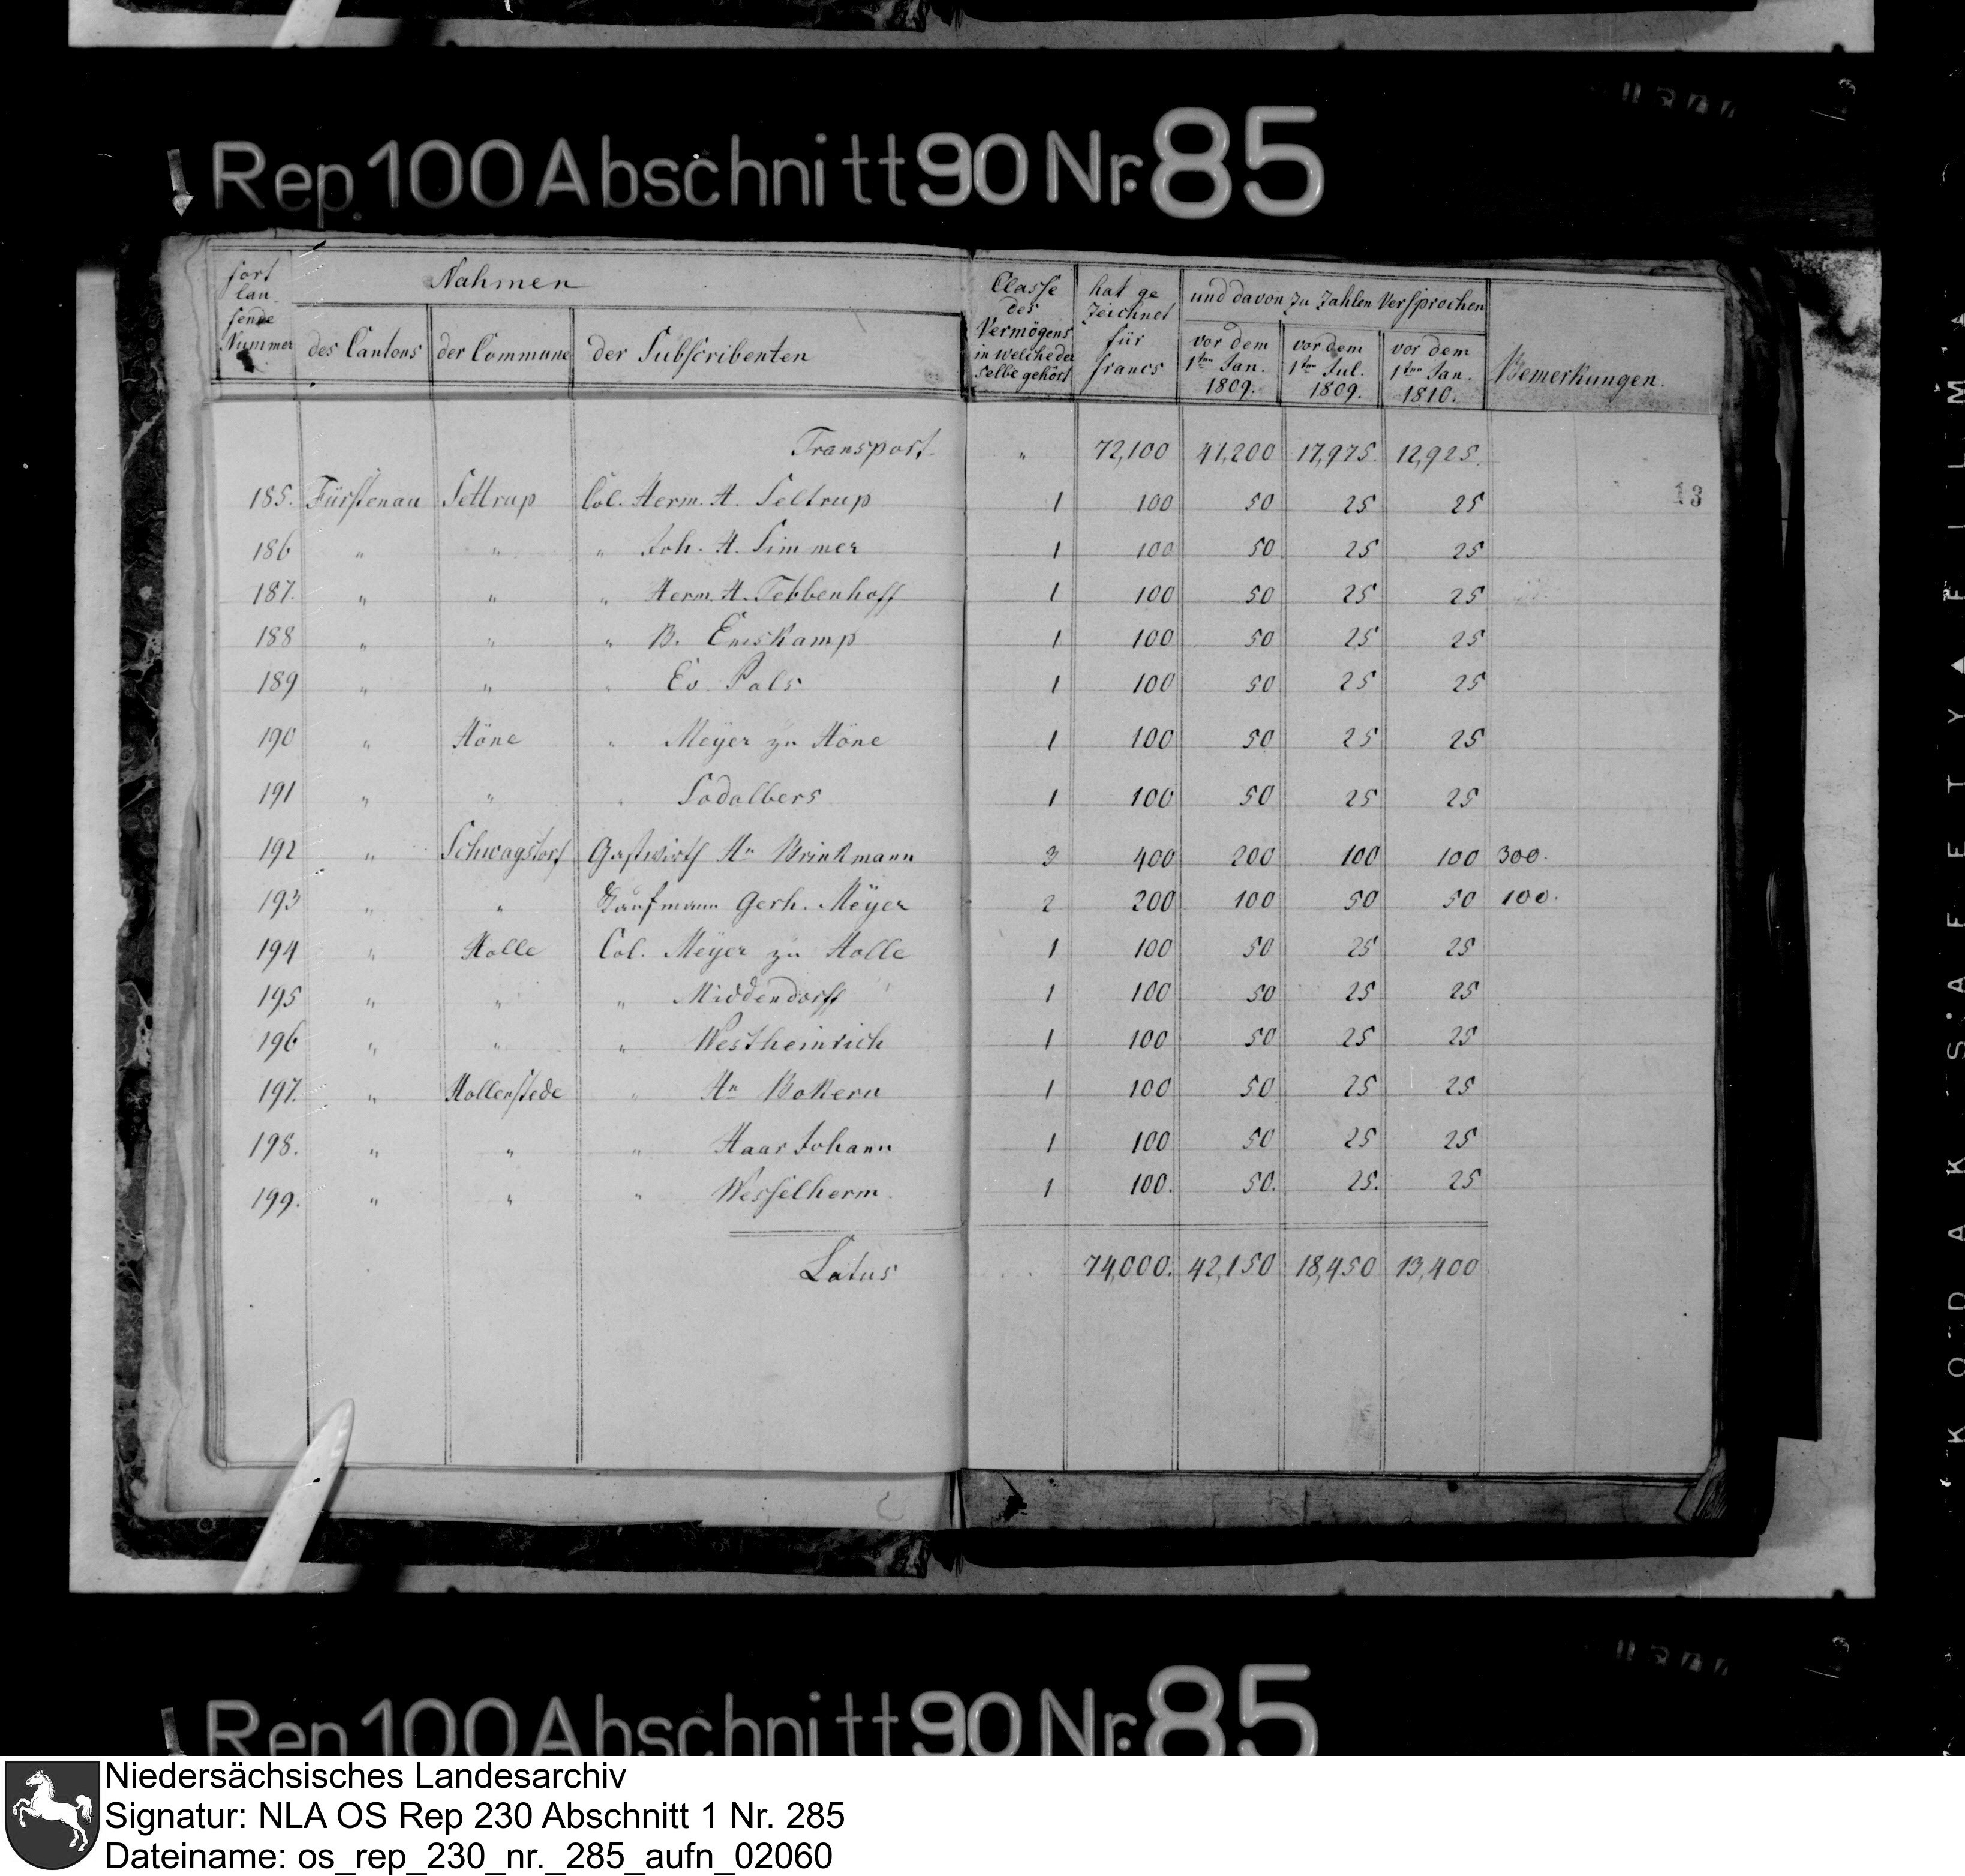 Rep. 100 Abschnitt 90 Nr. 85
fort lau fende Nummer | Nahmen | Classe des Vermögens in welche der selbe gehört | hat ge zeichnet für francs | und davon zu zahlen versprochen | Bemerkungen.
des Cantons | der Commune | der Subscribenten | vor dem 1ten Jan. 1809. | vor dem 1ten Jul. 1809. | vor dem 1ten Jan. 1810.
Transport. " 72,100 41,200 17,975. 12,925.
185. Fürstenau Settrup Col. Herm. H. Settrup 1 100 50 25 25
13
186 " " " Joh. H. Simmer 1 100 50 25 25
187. " " " Herm. H. Tebbenhoff 1 100 50 25 25
188 " " " B. Emskamp 1 100 50 25 25
189 " " " Ev. Pals 1 100 50 25 25
190 " Höne " Meÿer zu Höne 1 100 50 25 25
191 " " " Sodalbers 1 100 50 25 25
192 " Schwagstorf Gastwirth Hn Brinkmann 3 400 200 100 100 300.
193 " " Kaufmann Gerh. Meÿer 2 200 100 50 50 100.
194 " Holle Col. Meÿer zu Holle 1 100 50 25 25
195 " " " Middendorff 1 100 50 25 25
196 " " " Westheinrich 1 100 50 25 25
197. " Hollenstede " Hn Bokern 1 100 50 25 25
198. " " " Haar Johann 1 100 50 25 25
199. " " " Wesselherm. 1 100. 50. 25. 25
Latus 74,000. 42,150 18,450 13,400
Rep 100 Abschnitt 90 Nr. 85
KODAK SAFETY FILM
Niedersächsisches Landesarchiv
Signatur: NLA OS Rep 230 Abschnitt 1 Nr. 285
Dateiname: os_rep_230_nr._285_aufn_02060